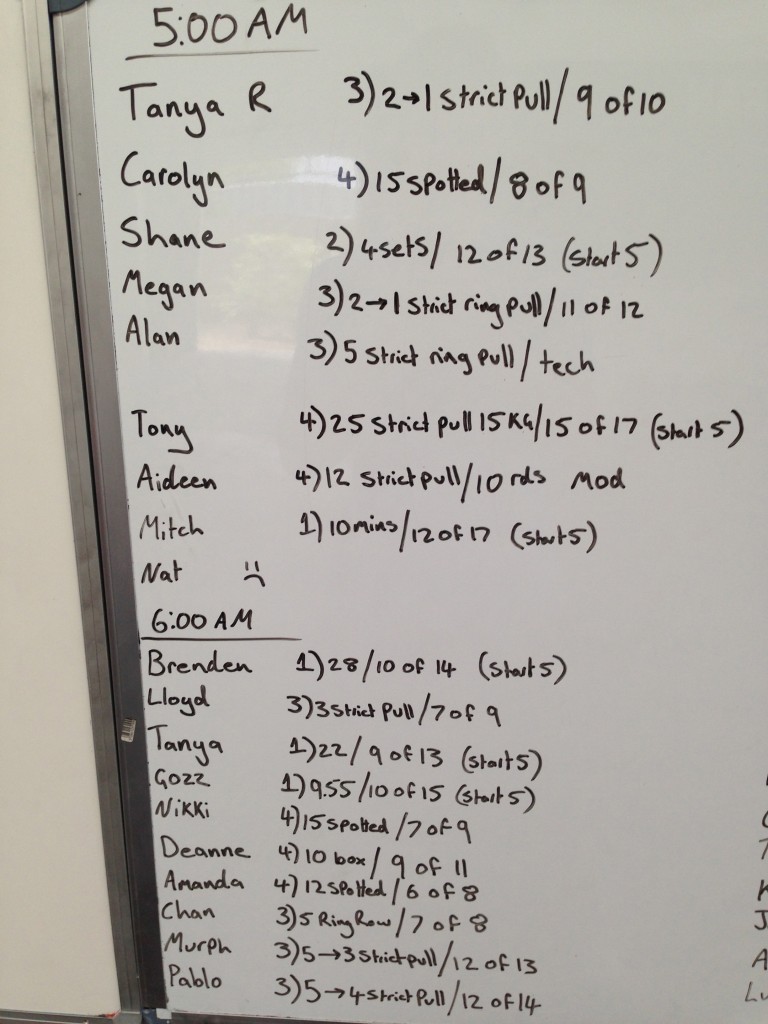 5:00 AM
Tanya R 3) 2→1 Strict Pull/ 9 of 10
Carolyn 4) 15 Spotted/ 8 of 9
Shane 2) 4 sets/ 12 of 13 (Start 5)
Megan 3) 2→1 Strict ring pull/ 11 of 12
Alan 3) 5 Strict ring pull/ tech
Tony 4) 25 Strict pull 15KG/15 of 17 (Start 5)
Aideen 4) 12 Strict pull/10 rds Mod
Mitch 1) 10 mins/12 of 17 (Start 5)
Nat
6:00 AM
Brenden 1) 28/10 of 14 (Start 5)
Lloyd 3) 3 Strict Pull/7 of 9
Tanya 1) 22/ 9 of 13 (Start 5)
Gozz 1) 9.55/10 of 15 (Start 5)
Nikki 4) 15 Spotted/7 of 9
Deanne 4) 10 box/ 9 of 11
Amanda 4) 12 Spotted/6 of 8
Chan 3) 5 Ring Row/7 of 8
Murph 3) 5→3 Strict pull/12 of 13
Pablo 3) 5→4 Strict Pull/12 of 14